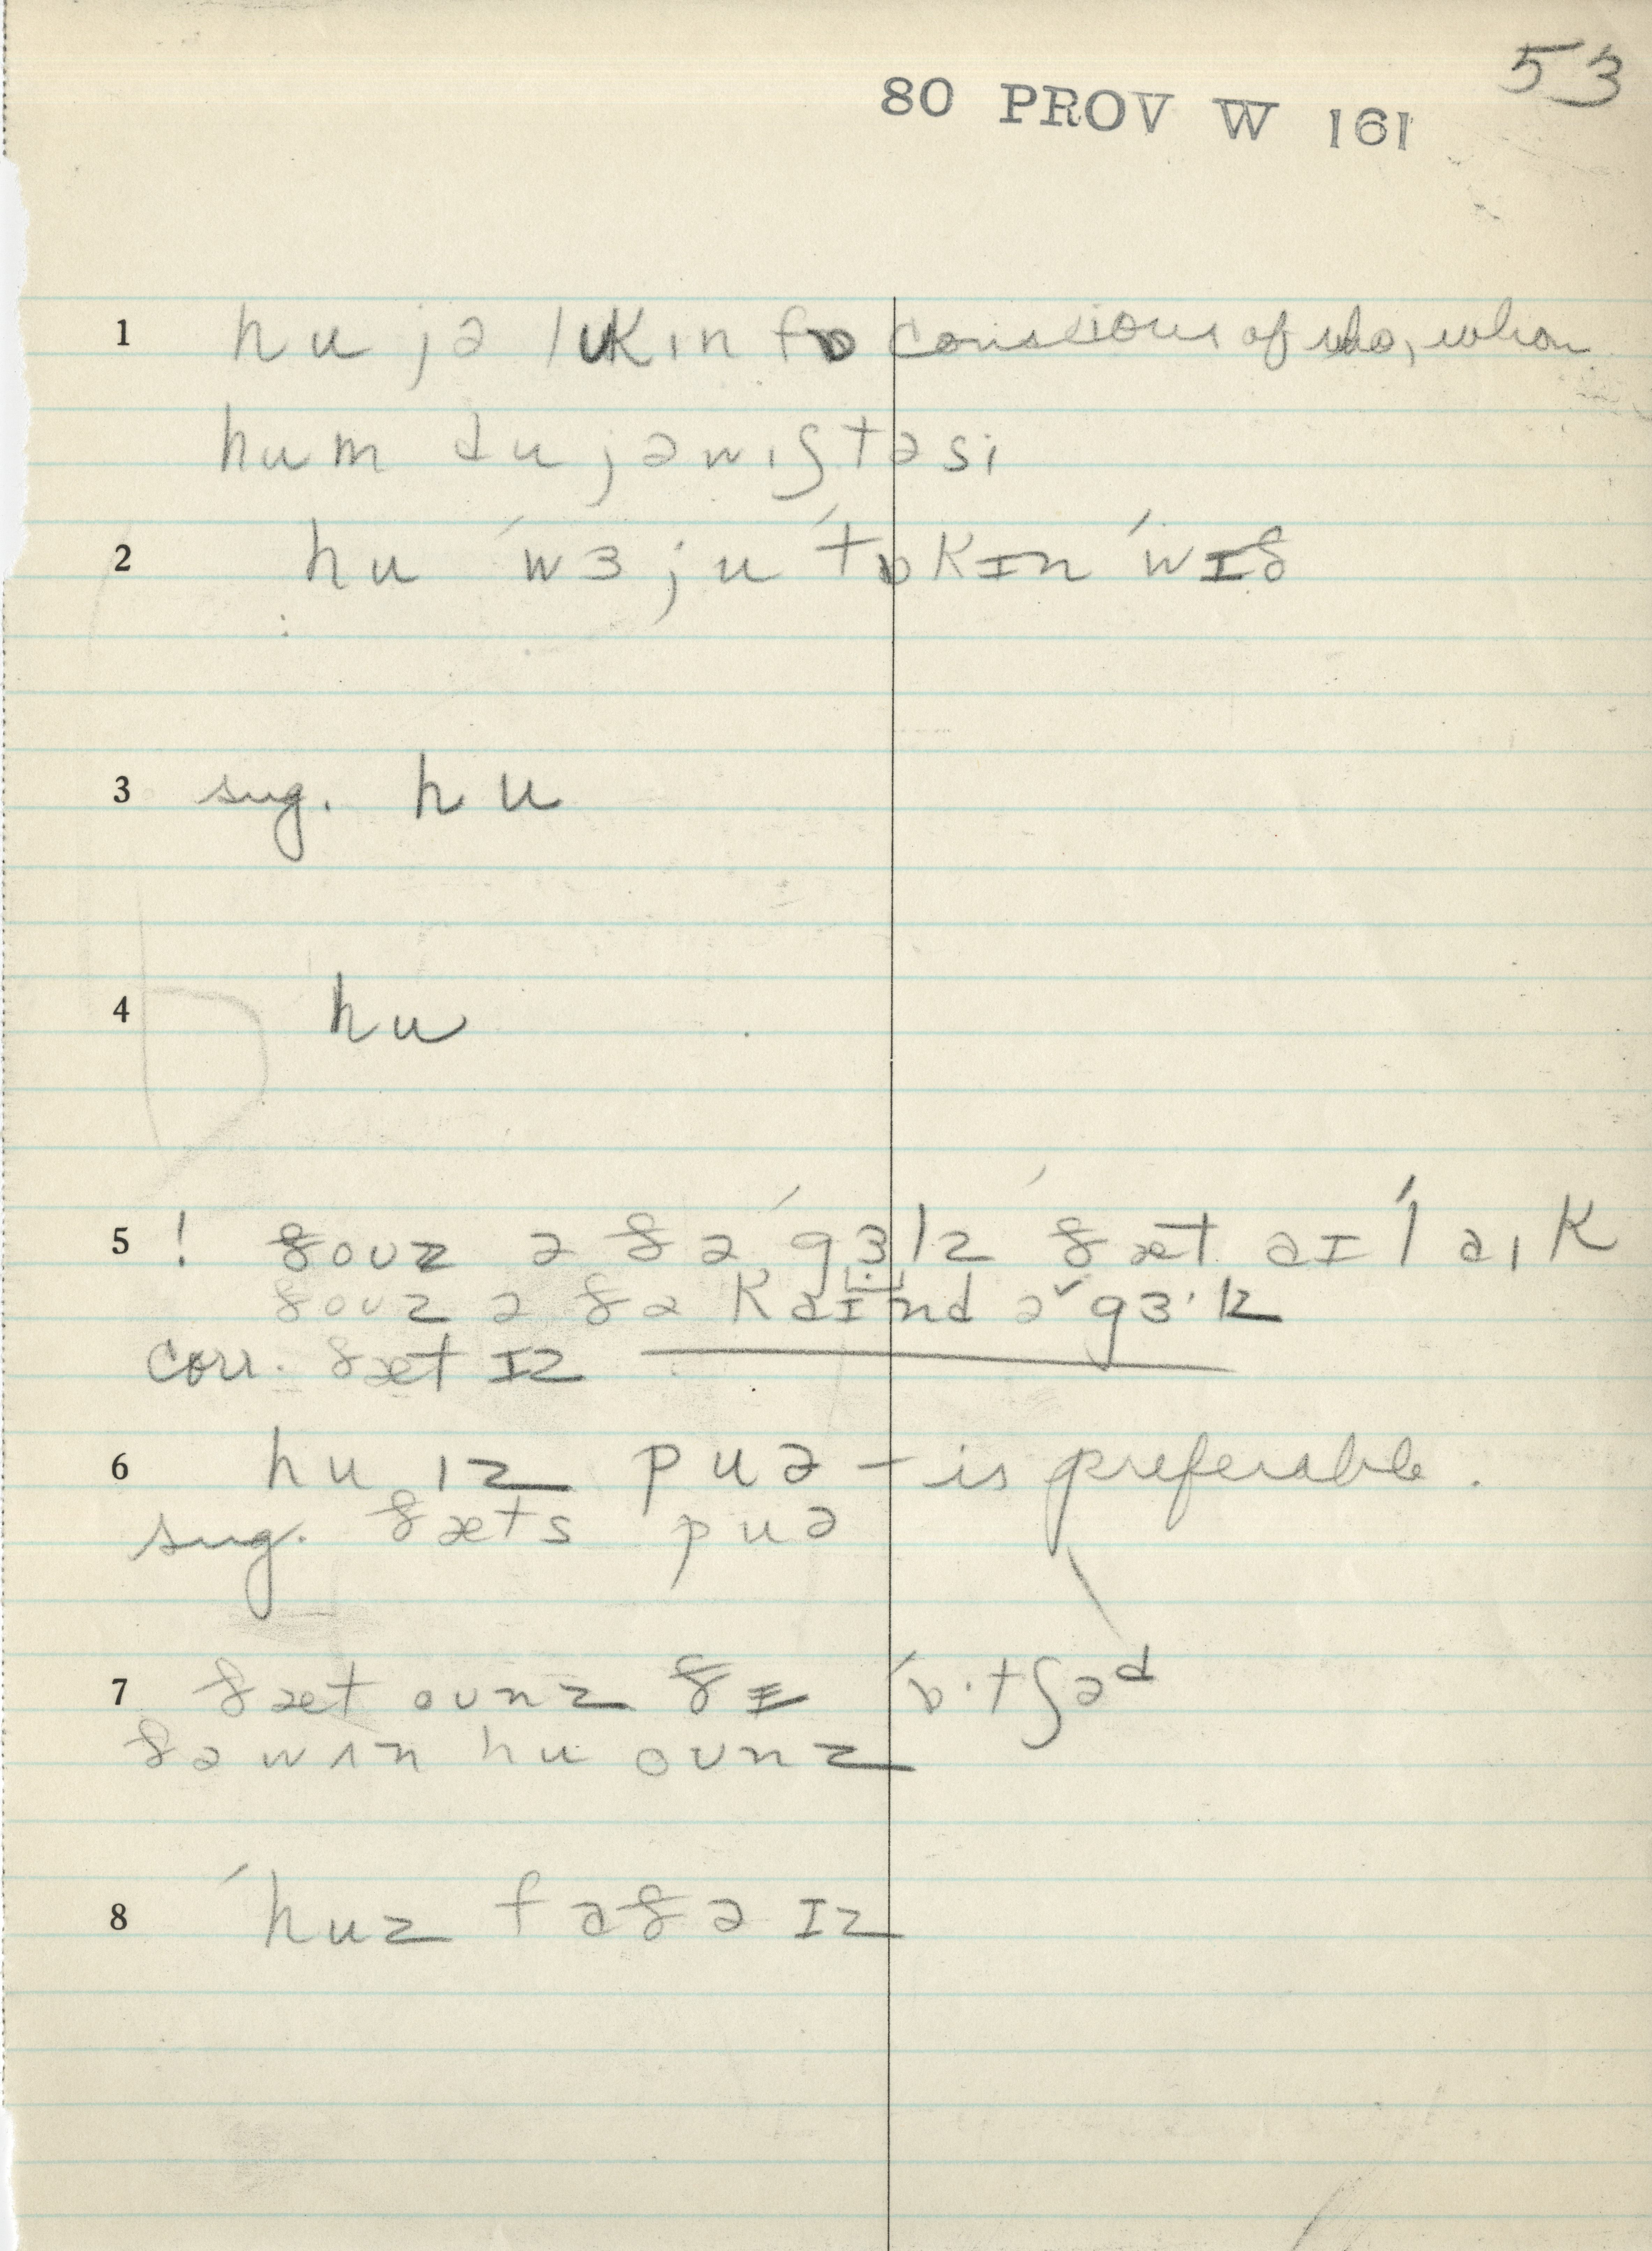 53
80 PROV W 161
1 hu jə lukɪn fɒ conscious of who, whom
hum du jə wɪʃ tə si
2 hu ˈwɜ ju ˈtɒkɪn ˈwɪð
3 sug. hu
4 hu
5 ! ðoʊz ə ðə ˈgɜlz ðæt aɪ ˈlaɪk
ðoʊz ə ðə kaɪnd ə gɜ·lz
corr. ðæt ɪz
6 hu ɪz puə – is preferable.
sug. ðæts puə
7 ðæt oʊnz ðɪ ˈɒ·tʃəd
ðə wʌn hu oʊnz
8 ˈhuz faðə ɪz